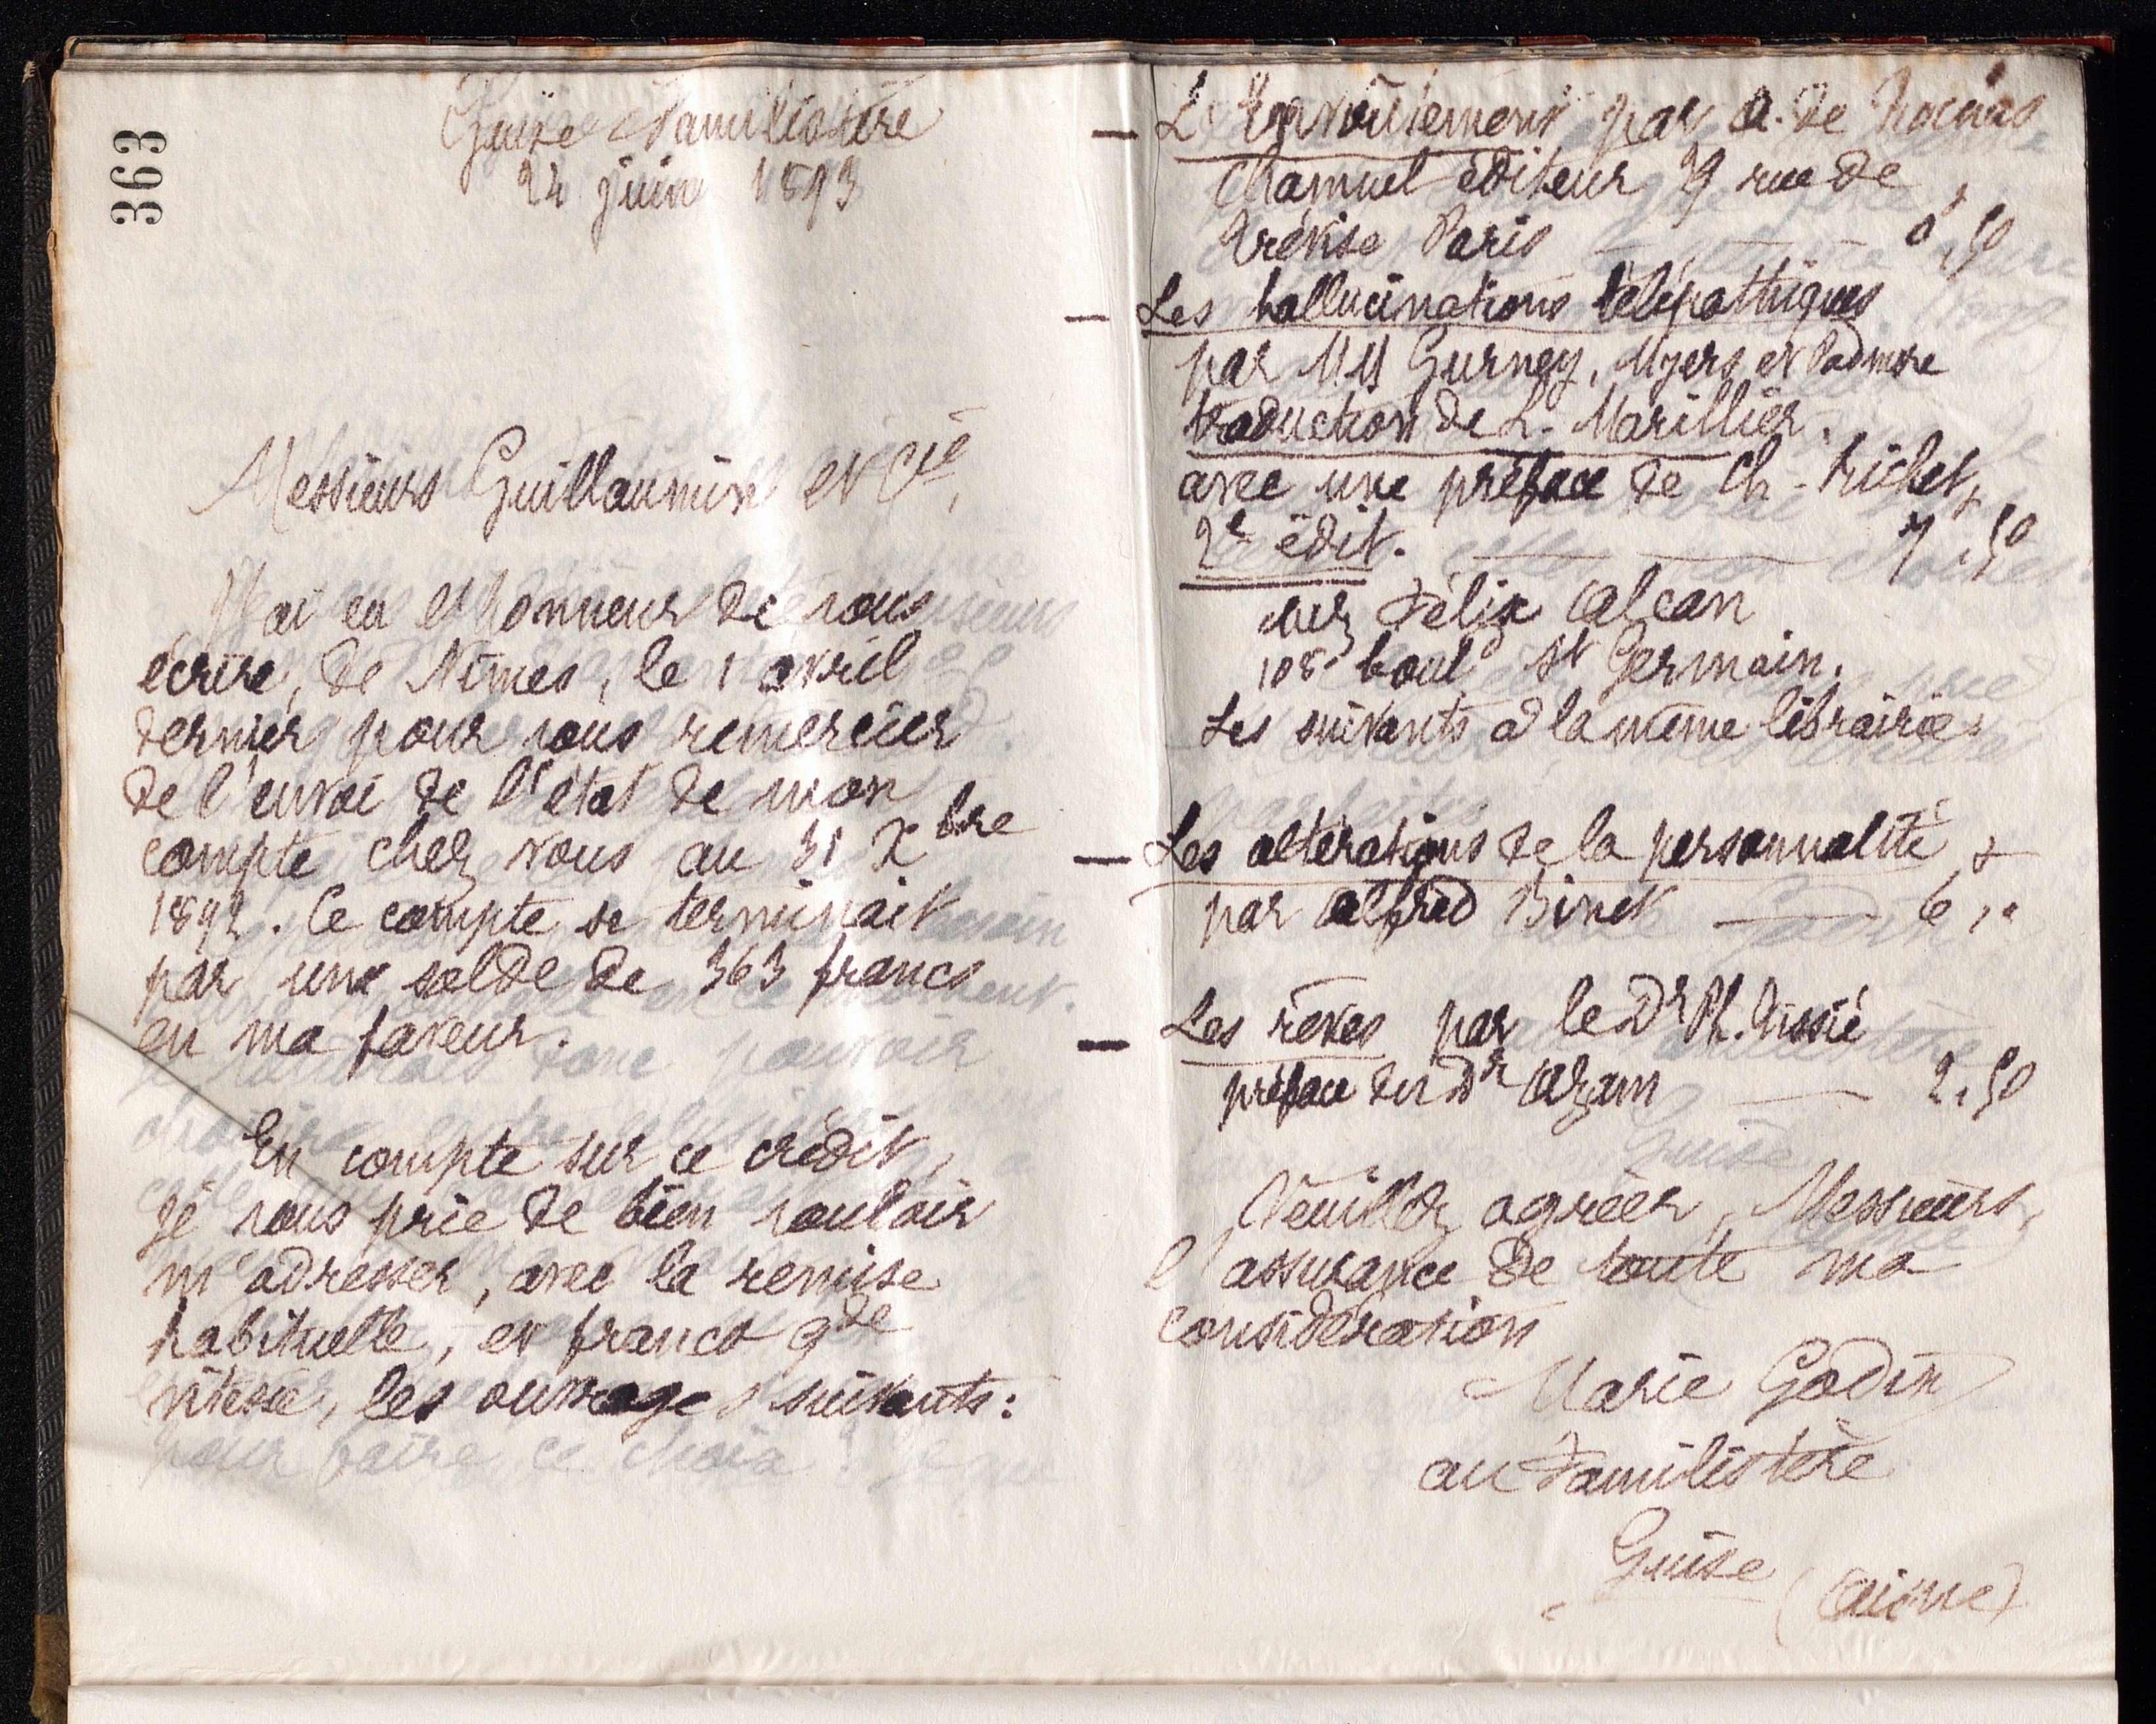 363
Guise Familistère
24 juin 1893
Messieurs Guillaumin et Cie,
J'ai eu l'honneur de vous
écrire, de Nîmes, le 1 avril
dernier pour vous remercier
de l'envoi de l'état de mon
compte chez vous au 31 Xbre
1892. Ce compte se terminait
par une solde de 363 francs
en ma faveur.
En compte sur ce crédit,
je vous prie de bien vouloir
m'adresser, avec la remise
habituelle, et franco gde
vitesse, les ouvrages suivants:
— L'Envoûtement par A. de Rochas
Chamuel éditeur 29 rue de
Trévise Paris — — 0f,50
— Les hallucinations télépathiques
par MM Gurney, Myers et Podmore
traduction de L. Marillier.
avec une préface de Ch. Richet,
2e édit. — — 7,50
chez Félix Alcan
108 bould St Germain.
Les suivants à la même librairie.
— Les altérations de la personnalité
par Alfred Binet — 6,"
— Les rêves par le Dr Ph. Tissié
préface du Dr Azam — 2,50
Veuillez agréer, Messieurs,
l'assurance de toute ma
considération
Marie Godin
au Familistère
Guise (Aisne)